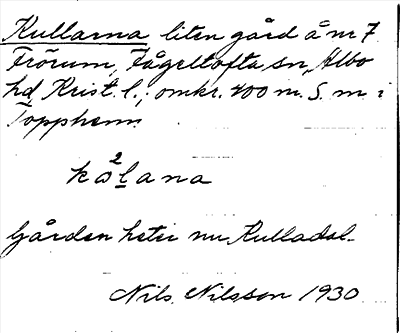 Kullarna liten gård å nr 7
Frörum, Fågeltofta sn, Albo
hd, Krist. l.; omkr. 400 m. S. m. i
Topphem.
2
kωlana
Gården heter nu Kulladal.
Nils Nilsson 1930